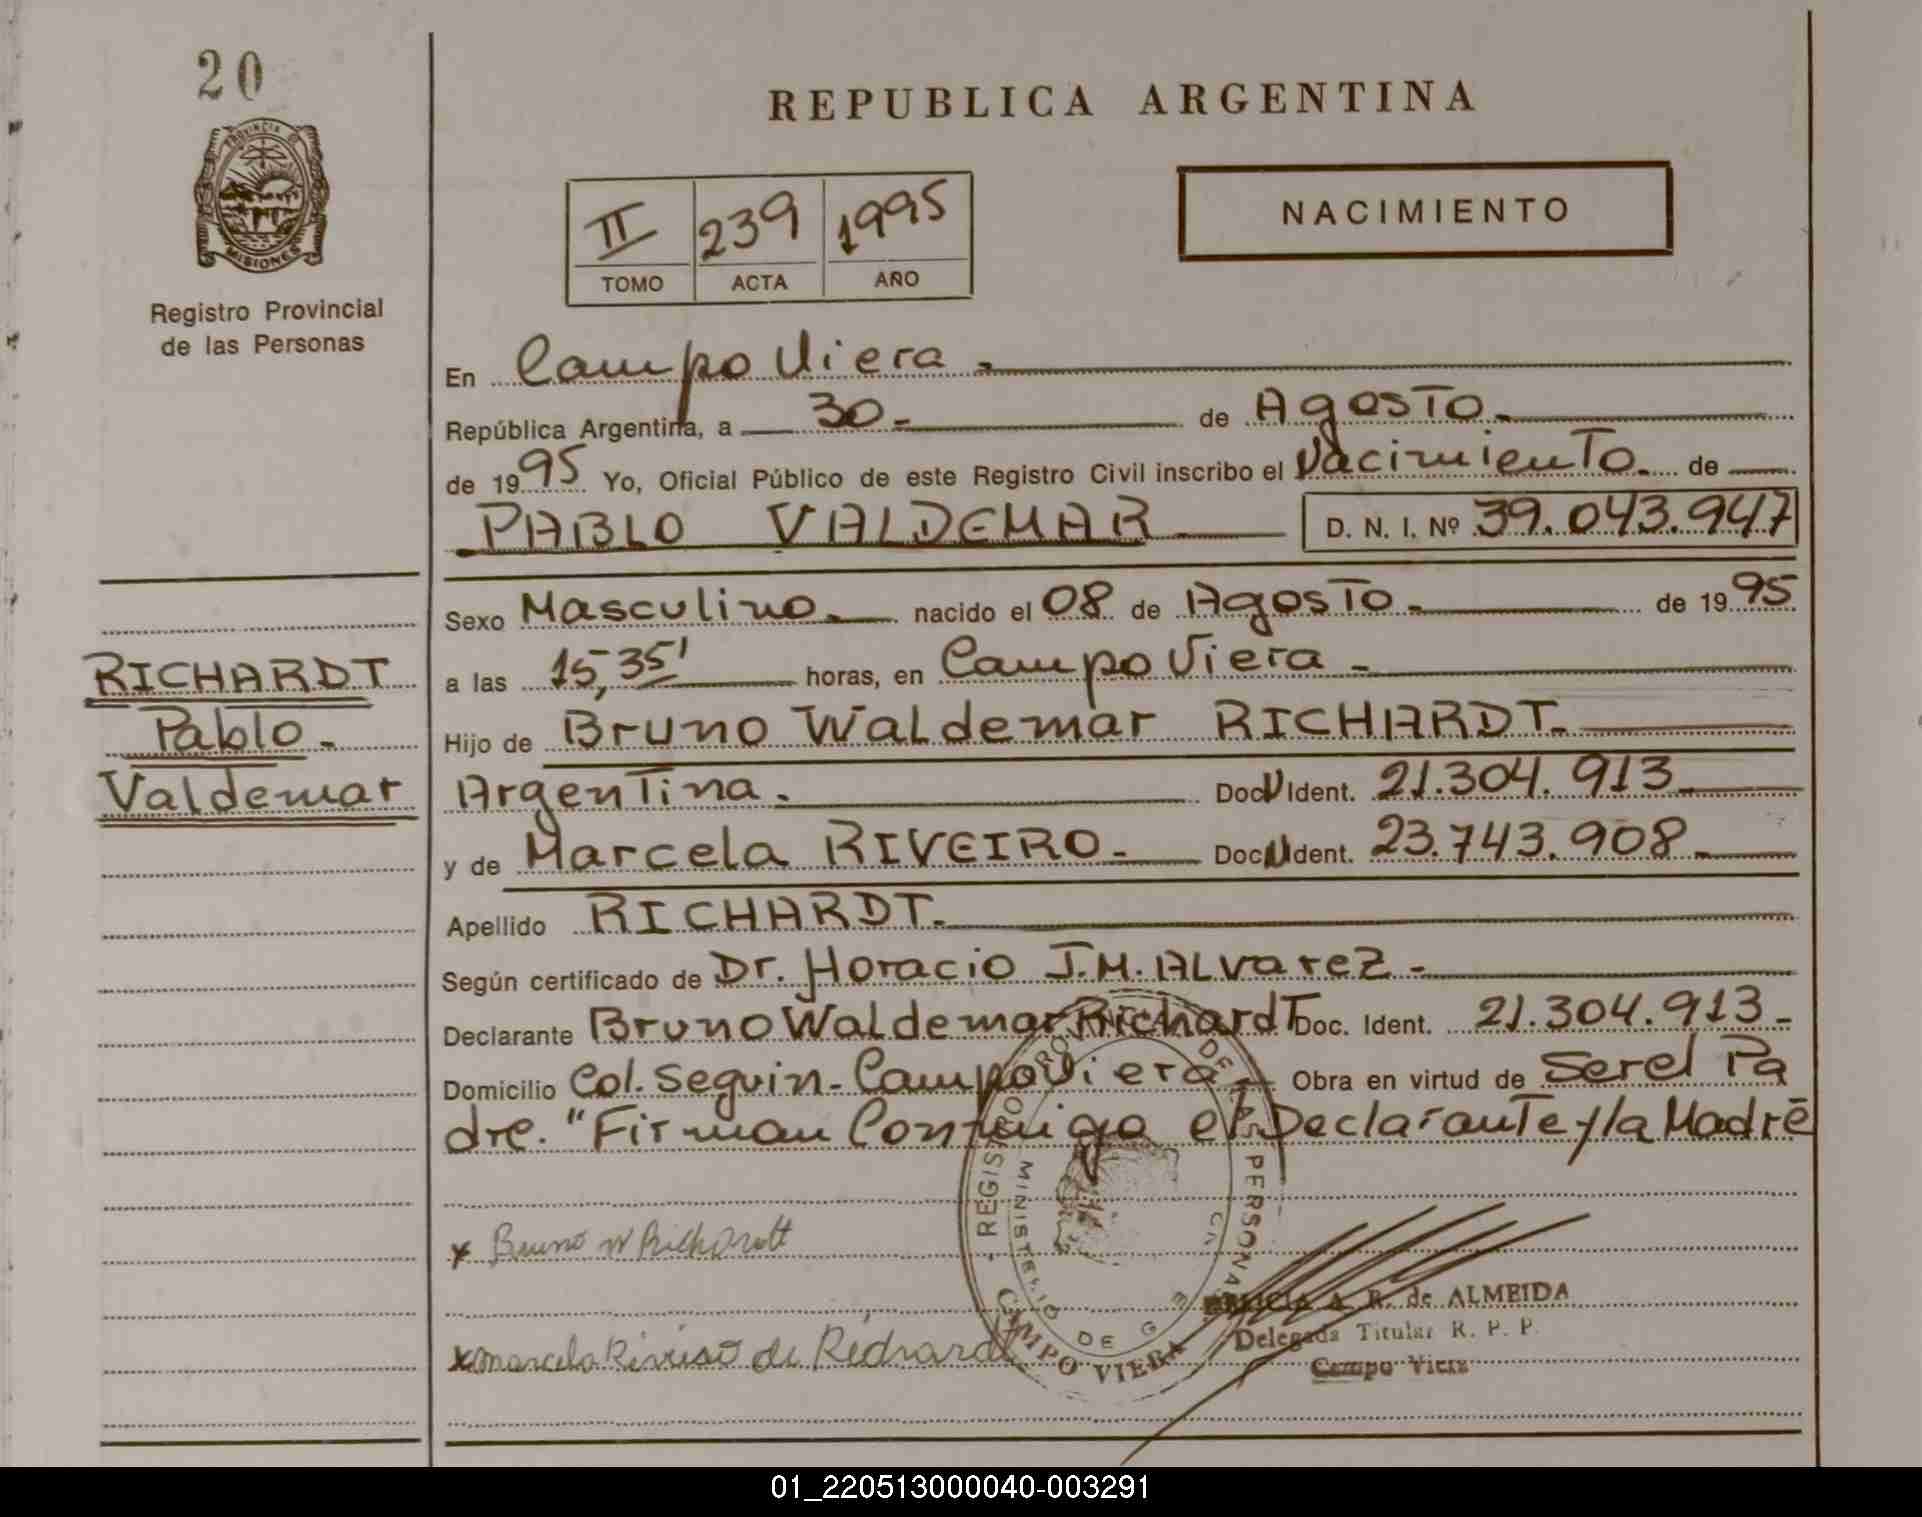 20
PROVINCIA DE
MISIONES
Registro Provincial
de las Personas
REPUBLICA ARGENTINA
II 239 1995
TOMO ACTA AÑO
NACIMIENTO
En Campo Viera.
República Argentina, a 30 de Agosto.
de 1995 Yo, Oficial Público de este Registro Civil inscribo el Nacimiento. de
PABLO VALDEMAR D. N. I. Nº 39.043.947
Sexo Masculino. nacido el 08 de Agosto. de 1995
a las 15,35' horas, en Campo Viera -
Hijo de Bruno Waldemar RICHARDT.
Argentina. Doc U Ident. 21.304.913
y de Marcela RIVEIRO- Doc U Ident. 23.743.908
Apellido RICHARDT.
Según certificado de Dr. Horacio J.M. ALvarez -
Declarante Bruno Waldemar Richardt Doc. Ident. 21.304.913-
Domicilio Col. Seguin - Campo Viera - Obra en virtud de Ser el Pa
dre. "Firman Conmigo el Declarante y la Madre
RICHARDT
Pablo -
Valdemar
x Bruno W Richardt
x Marcela Riveiro de Richardt
REGISTRO PROVINCIAL DE LAS PERSONAS
MINISTERIO DE G
CAMPO VIERA
A. R. de ALMEIDA
Delegada Titular R. P. P.
Campo Viera
01_220513000040-003291